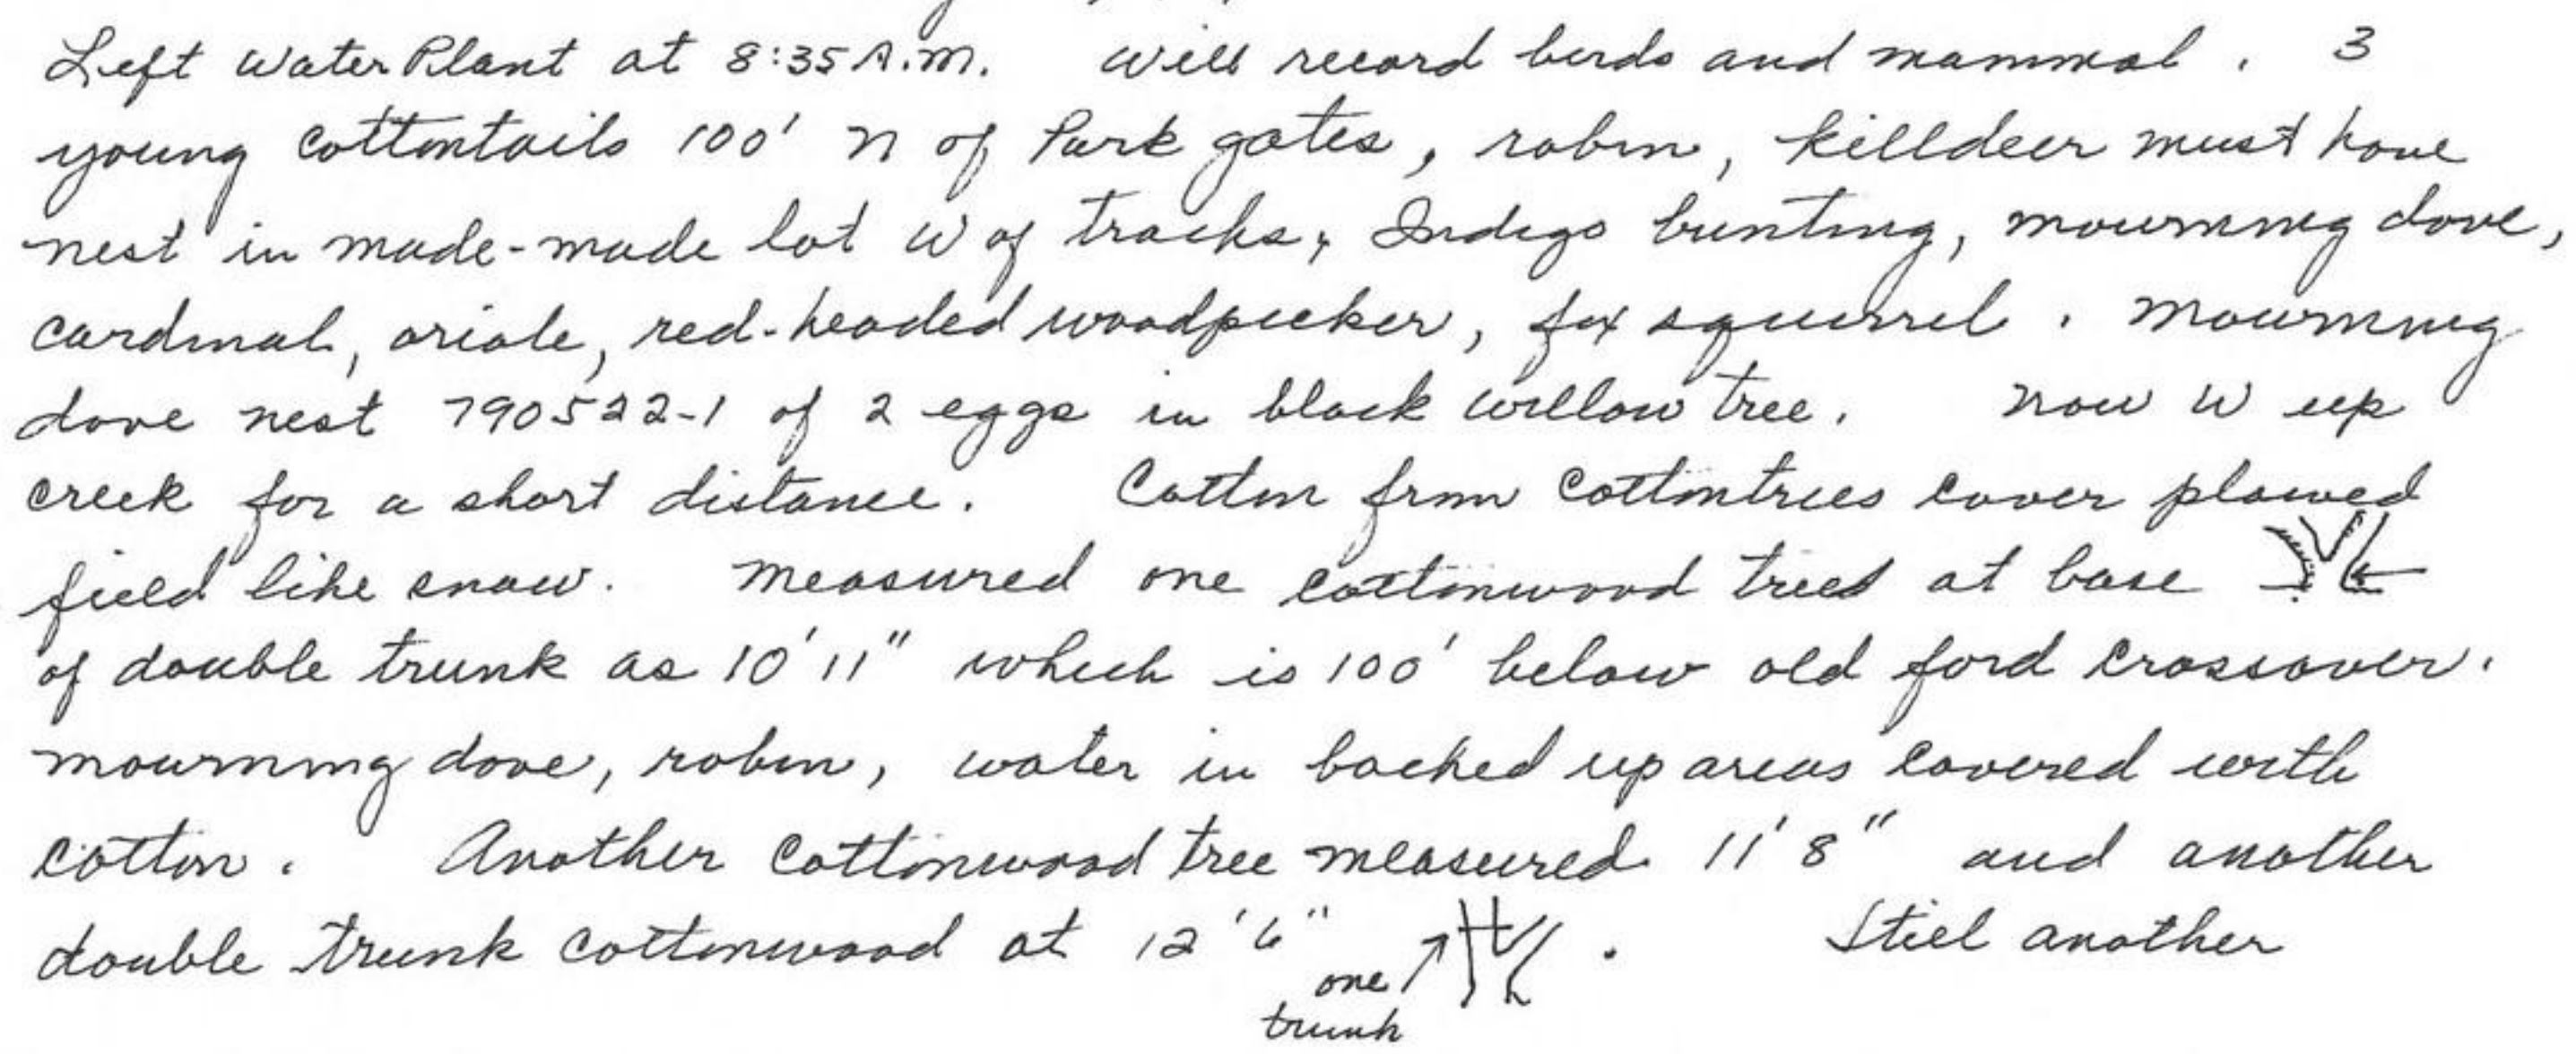 Left Water Plant at 8:35 A.M. Will record birds and mammal. 3
young cottontails 100' N of Park gates, robin, killdeer must have
nest in made-made lot W of tracks, Indigo bunting, mourning dove,
cardinal, oriole, red-headed woodpecker, fox squirrel. Mourning
dove nest 790522-1 of 2 eggs in black willow tree. Now W up
creek for a short distance. Cotton from cottontrees cover plowed
field like snow. Measured one cottonwood tree at base
of double trunk as 10'11" which is 100' below old ford crossover.
Mourning dove, robin, water in backed up areas covered with
cotton. Another cottonwood tree measured 11'8" and another
double trunk cottonwood at 12'6" . Still another
one
trunk